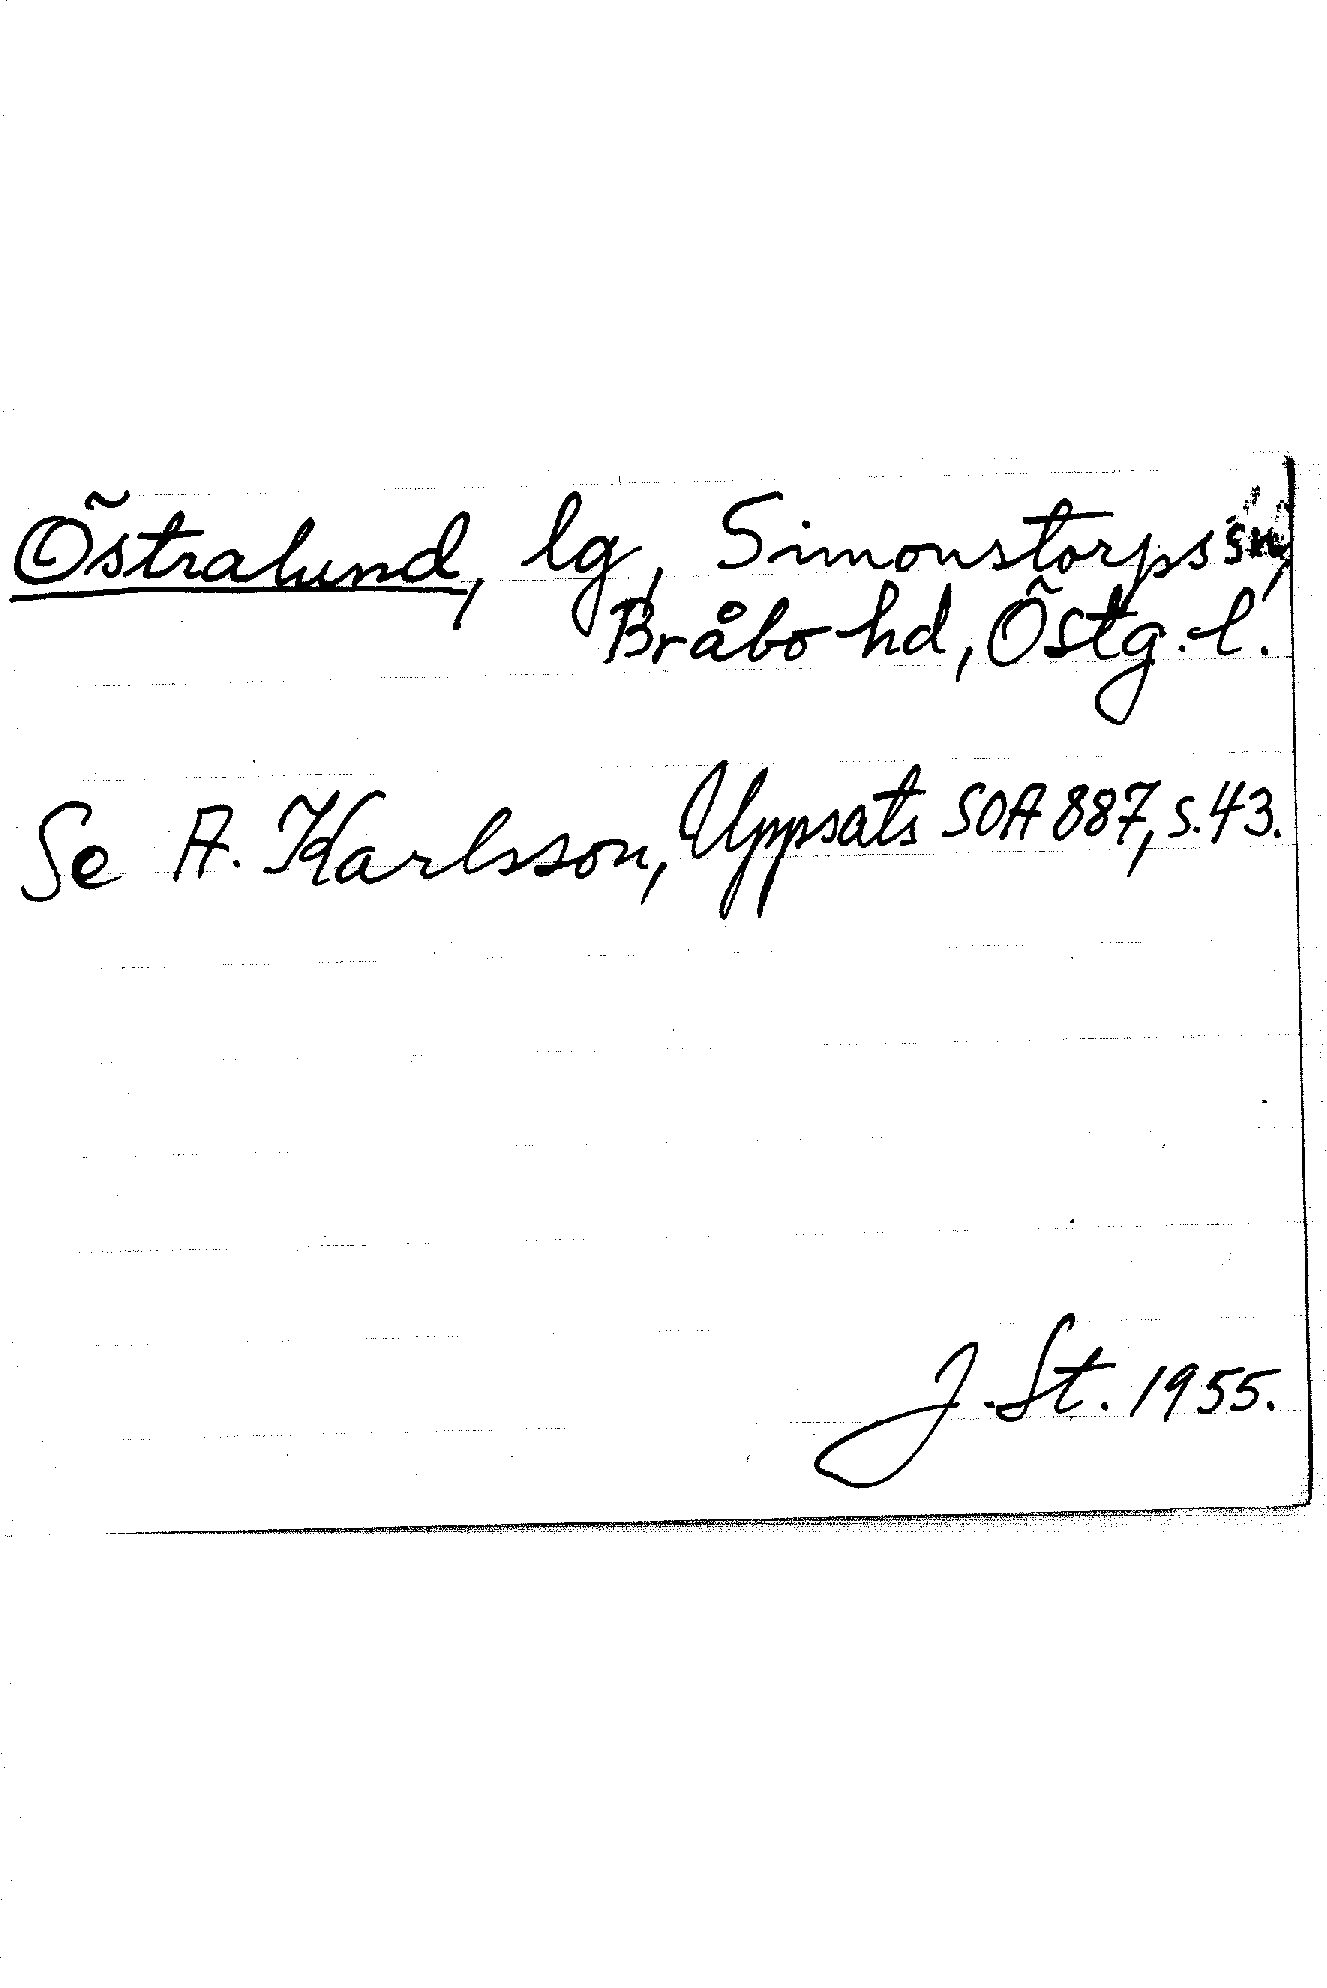 Östralund, lg, Simonstorps sn,
Bråbo hd, Östg. l.
Se A. Karlsson, Uppsats SOA 887, s. 43.
J. St. 1955.